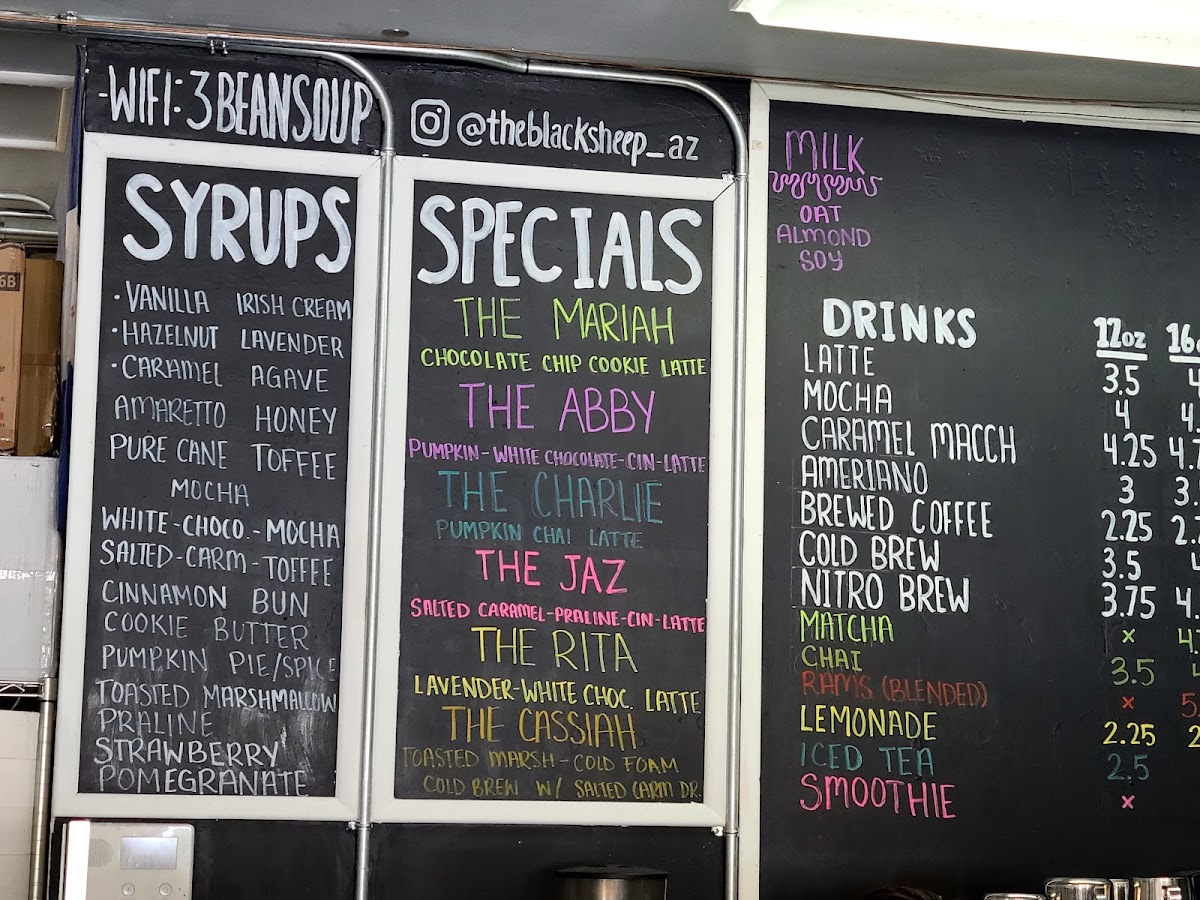 -WIFI: 3BEANSOUP
@theblacksheep_az
SYRUPS
·VANILLA IRISH CREAM
·HAZELNUT LAVENDER
·CARAMEL AGAVE
AMARETTO HONEY
PURE CANE TOFFEE
MOCHA
WHITE-CHOCO.-MOCHA
SALTED-CARM-TOFFEE
CINNAMON BUN
COOKIE BUTTER
PUMPKIN PIE/SPICE
TOASTED MARSHMALLOW
PRALINE
STRAWBERRY
POMEGRANATE
SPECIALS
THE MARIAH
CHOCOLATE CHIP COOKIE LATTE
THE ABBY
PUMPKIN-WHITE CHOCOLATE-CIN-LATTE
THE CHARLIE
PUMPKIN CHAI LATTE
THE JAZ
SALTED CARAMEL-PRALINE-CIN-LATTE
THE RITA
LAVENDER-WHITE CHOC. LATTE
THE CASSIAH
TOASTED MARSH-COLD FOAM
COLD BREW W/ SALTED CARM DR.
MILK
OAT
ALMOND
SOY
DRINKS 12oz
LATTE 3.5
MOCHA 4
CARAMEL MACCH 4.25
AMERIANO 3
BREWED COFFEE 2.25
COLD BREW 3.5
NITRO BREW 3.75
MATCHA x
CHAI 3.5
RAMS (BLENDED) x
LEMONADE 2.25
ICED TEA 2.5
SMOOTHIE x